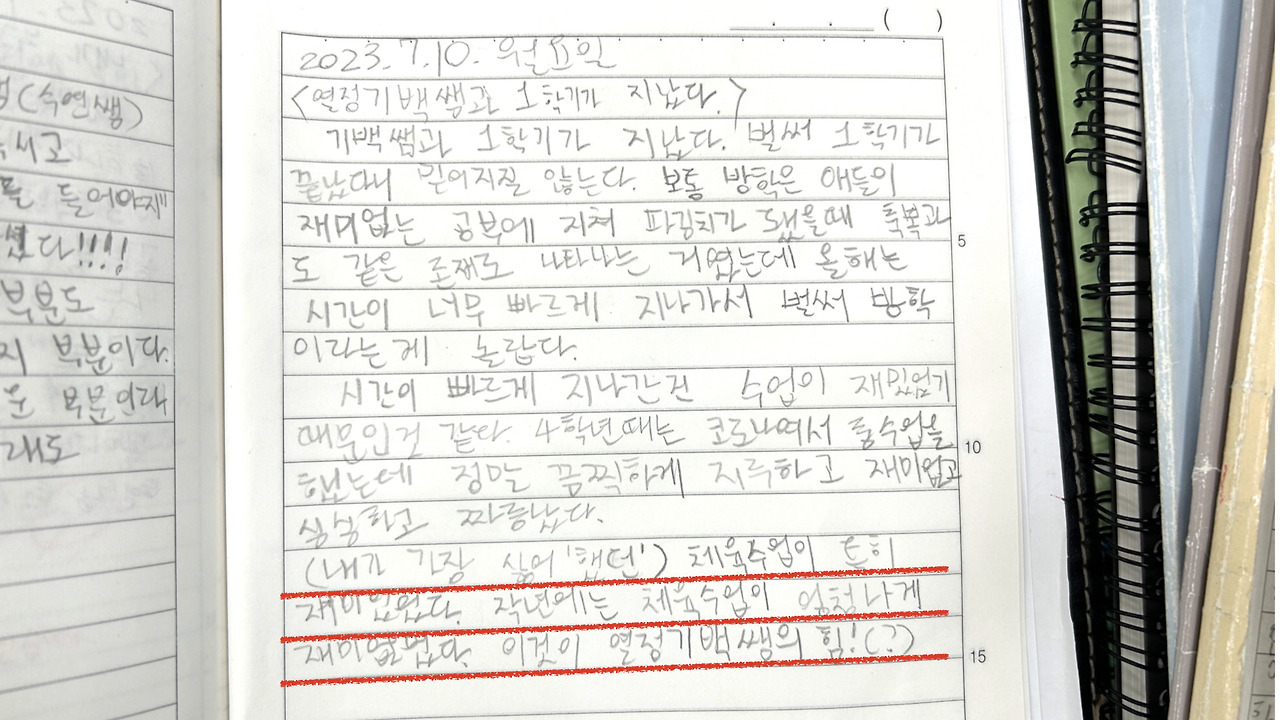 (수연쌤)
시고
들어야지"
다!!!!
부분도
지 부분이다.
운 부분이라
래도
( )
2023.7.10. 월요일
<열정기백쌤과 1학기가 지났다.>
기백쌤과 1학기가 지났다. 벌써 1학기가
끝났다니 믿어지질 않는다. 보통 방학은 애들이
재미없는 공부에 지쳐 파김치가 됐을때 축복과
5
도 같은 존재로 나타나는 거였는데 올해는
시간이 너무 빠르게 지나가서 벌써 방학
이라는게 놀랍다.
시간이 빠르게 지나간건 수업이 재밌었기
때문인것 같다. 4학년때는 코로나여서 줌수업을
10
했는데 정말 끔찍하게 지루하고 재미없고
짜증났다.
(내가 가장 싫어'했던') 체육수업이 특히
재미있었다. 작년에는 체육수업이 엄청나게
재미없었다. 이것이 열정기백쌤의 힘!(?)
15